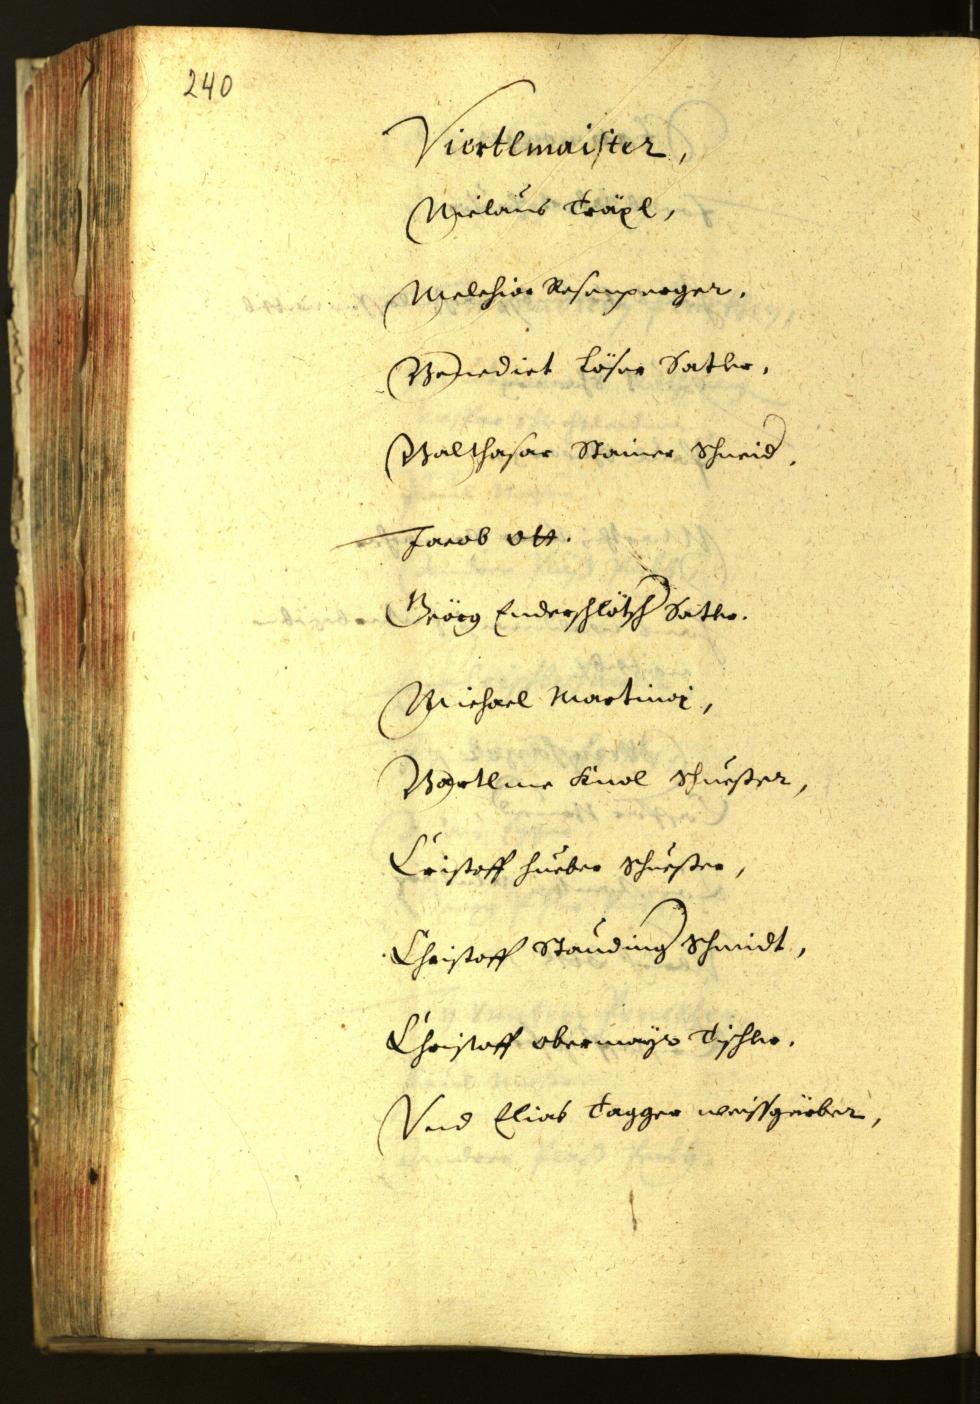 240
Viertlmaister,
Niclaus Träxl,
Melchior Rosenperger,
Benedict Löser Satler,
Balthasar Stainer Schneid,
Jacob Ott.
Geörg Enderschlötsch Satler.
Michael Martinoi,
Bartlme Knol Schuester,
Cristoff Hueber Schuester,
Christoff Stauding Schmidt,
Christoff Obermayr Tischler.
Vnd Elias Tagger weissgärber,